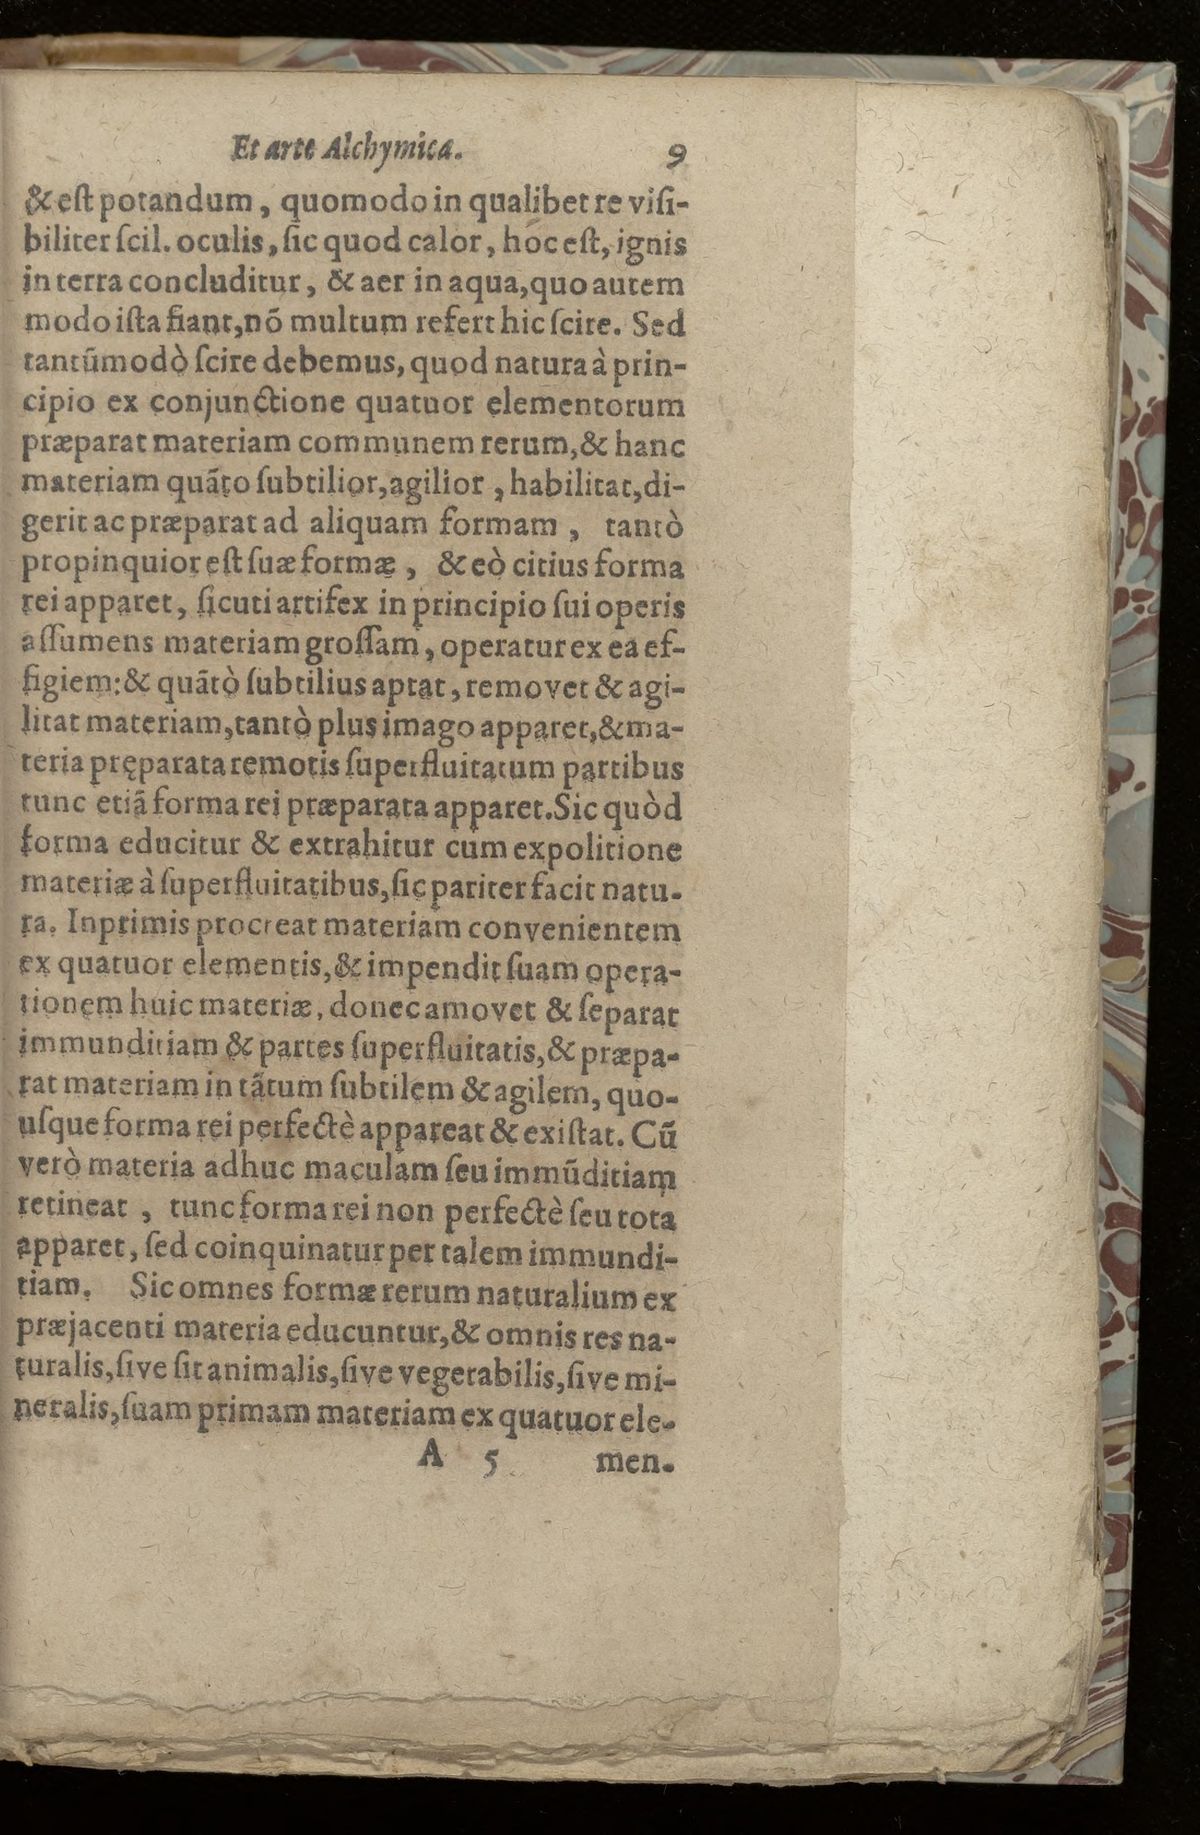 Et arte Alchymica. 9
& eſt potandum, quomodo in qualibet re viſi-
biliter ſcil. oculis, ſic quod calor, hoc eſt, ignis
in terra concluditur, & aer in aqua, quo autem
modo iſta fiant, nō multum refert hic ſcire. Sed
tantūmodò ſcire debemus, quod natura à prin-
cipio ex conjunctione quatuor elementorum
præparat materiam communem rerum, & hanc
materiam quāto ſubtilior, agilior, habilitat, di-
gerit ac præparat ad aliquam formam, tantò
propinquior eſt ſuæ formæ, & eò citius forma
rei apparet, ſicuti artifex in principio ſui operis
aſſumens materiam groſſam, operatur ex ea ef-
figiem: & quātò ſubtilius aptat, removet & agi-
litat materiam, tantò plus imago apparet, & ma-
teria pręparata remotis ſuperfluitatum partibus
tunc etiā forma rei præparata apparet. Sic quòd
forma educitur & extrahitur cum expolitione
materiæ à ſuperfluitatibus, ſic pariter facit natu-
ra. Inprimis procreat materiam convenientem
ex quatuor elementis, & impendit ſuam opera-
tionem huic materiæ, donec amovet & ſeparat
immunditiam & partes ſuperfluitatis, & præpa-
rat materiam in tātum ſubtilem & agilem, quo-
uſque forma rei perfectè appareat & exiſtat. Cū
verò materia adhuc maculam ſeu immūditiam
retineat, tunc forma rei non perfectè ſeu tota
apparet, ſed coinquinatur per talem immundi-
tiam. Sic omnes formæ rerum naturalium ex
præjacenti materia educuntur, & omnis res na-
turalis, ſive ſit animalis, ſive vegetabilis, ſive mi-
neralis, ſuam primam materiam ex quatuor ele-
A 5 men-